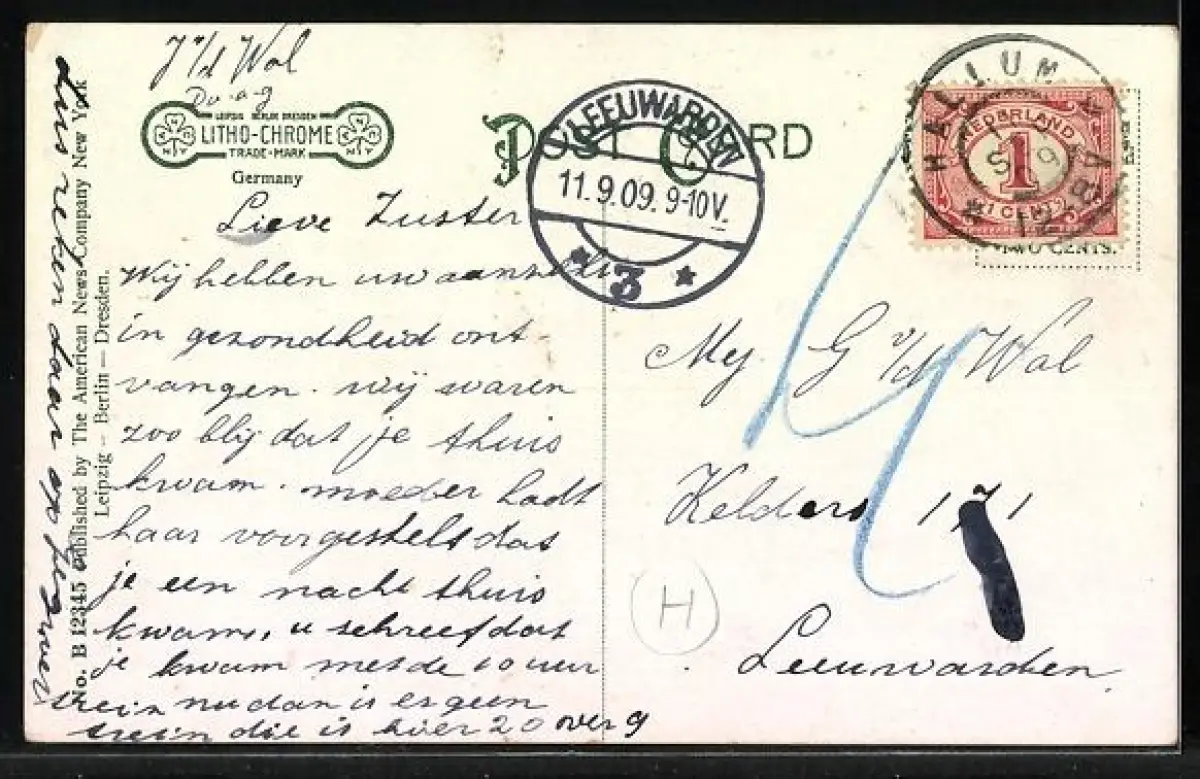 J v/d Wol
LEIPZIG BERLIN DRESDEN
LITHO-CHROME
TRADE-MARK
Germany
POST CARD
LEEUWARDEN
11.9.09. 9-10V.
3
HALLUM
NEDERLAND
1
1 CENT
TWO CENTS.
Lieve Zuster
Wij hebben uw
in gezondheid ont-
vangen. wij waren
zoo blij dat je thuis
kwam. moeder hadt
haar voorgestelt dat
je een nacht thuis
kwam, u schreef dat
je kwam met de 10 uur
trein nu dan is er geen
trein die is hier 20 over 9
dus reken daar op
My G v/d Wal
Kelders 171
Leeuwarden
H
No. B 12345 Published by The American News Company New York
Leipzig – Berlin – Dresden.